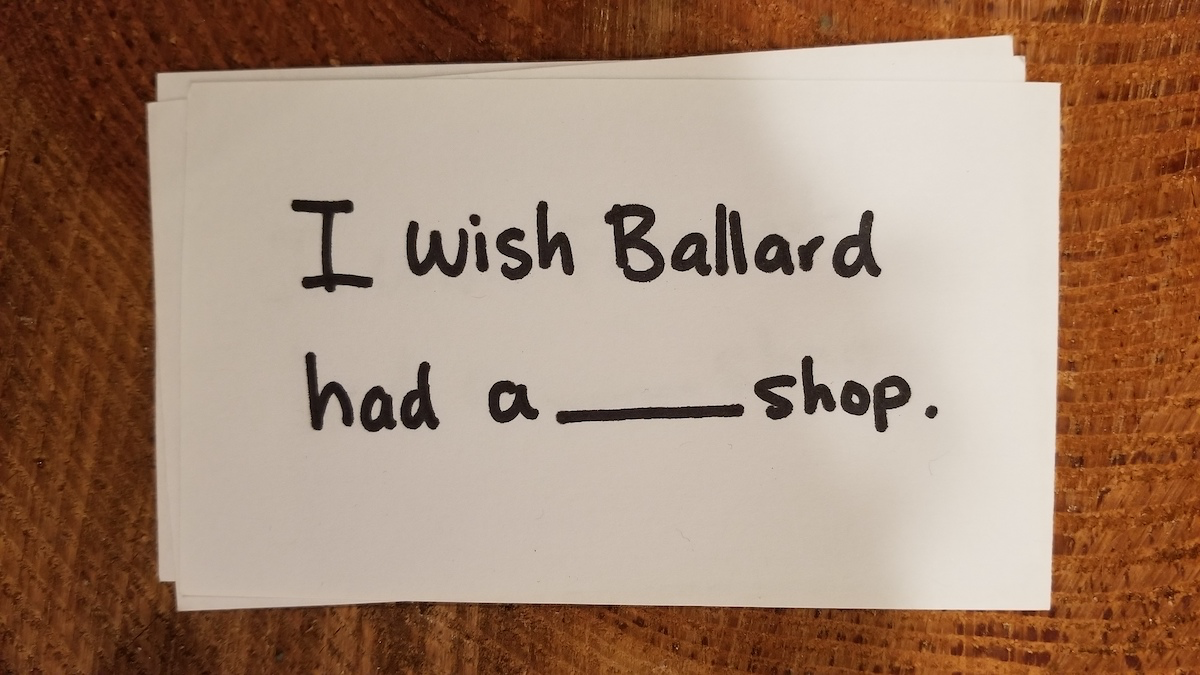 I wish Ballard
had a ____ shop.